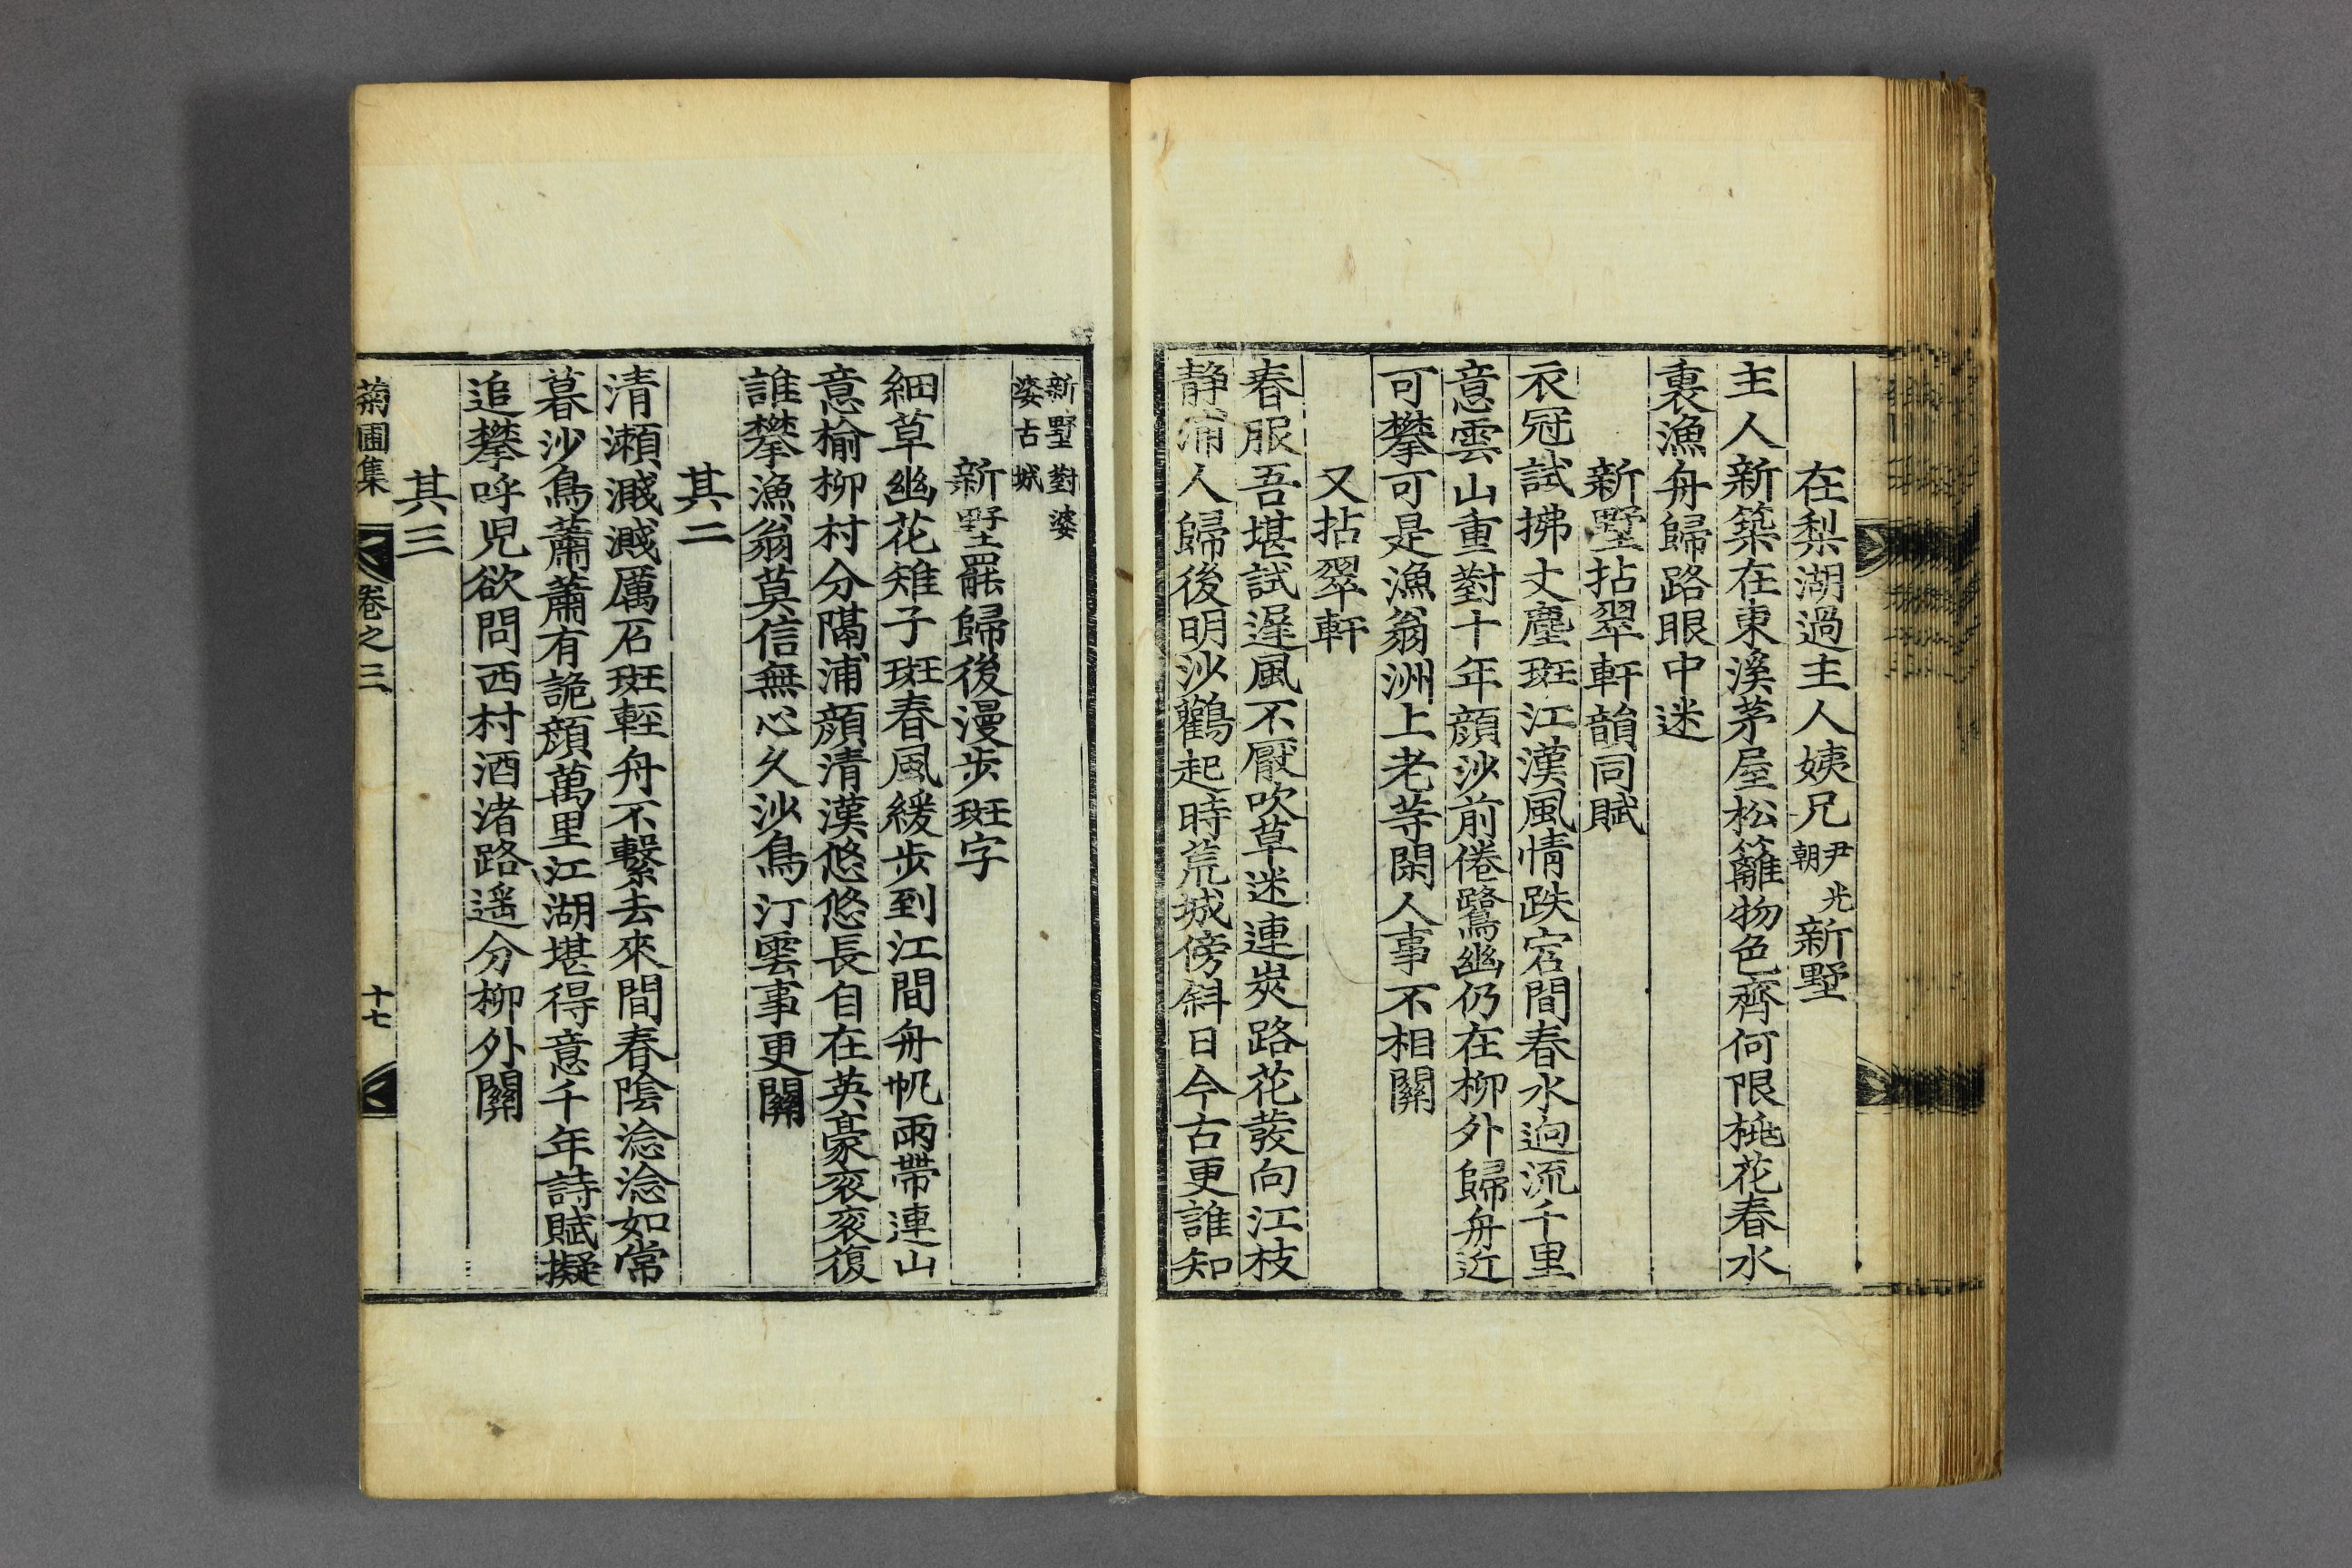 在梨湖過主人姨兄尹朝光新墅
主人新築在東溪茅屋松籬物色齊何限桃花春水
裏漁舟歸路眼中迷
新墅拈翠軒韻同賦
衣冠試拂丈塵斑江漢風情跌宕間春水逈流千里
意雲山重對十年顔沙前倦鷺幽仍在柳外歸舟近
可攀可是漁翁洲上老等閑人事不相關
又拈翠軒
春服吾堪試遅風不厭吹草迷連炭路花發向江枝
静浦人歸後明沙鸛起時荒城傍斜日今古更誰知
新墅對婆
娑古城
新墅罷歸後漫步斑字
細草幽花雉子斑春風緩步到江間舟帆兩帶連山
意榆柳村分隔浦顔清漢悠悠長自在英豪衮衮復
誰攀漁翁莫信無心久沙鳥汀雲事更關
其二
清瀬濺濺厲石斑輕舟不繫去來間春陰淰淰如常
暮沙鳥蕭蕭有詭顔萬里江湖堪得意千年詩賦擬
追攀呼兒欲問西村酒渚路遥分柳外關
其三
菊圃集 卷之三 十七